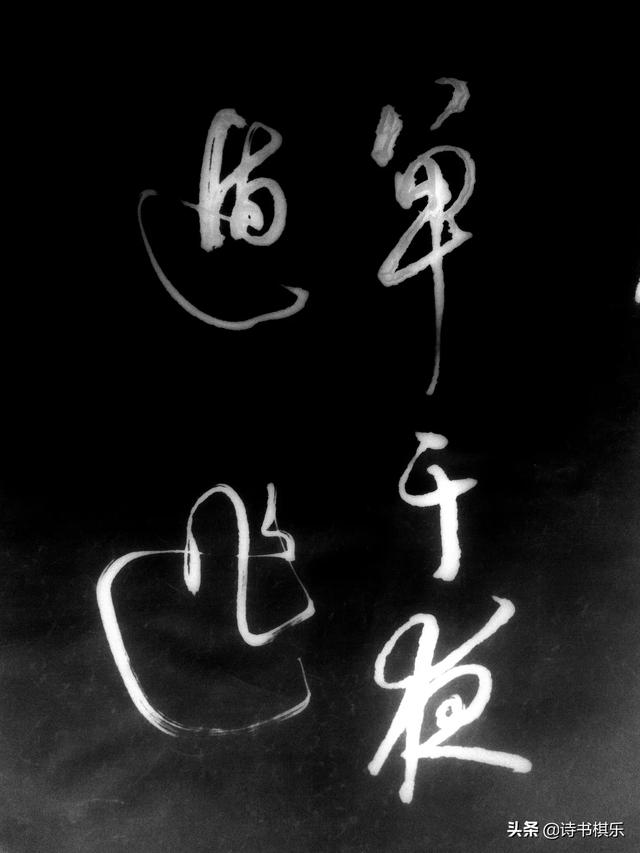 单于夜
遁逃
头条 @诗书棋乐